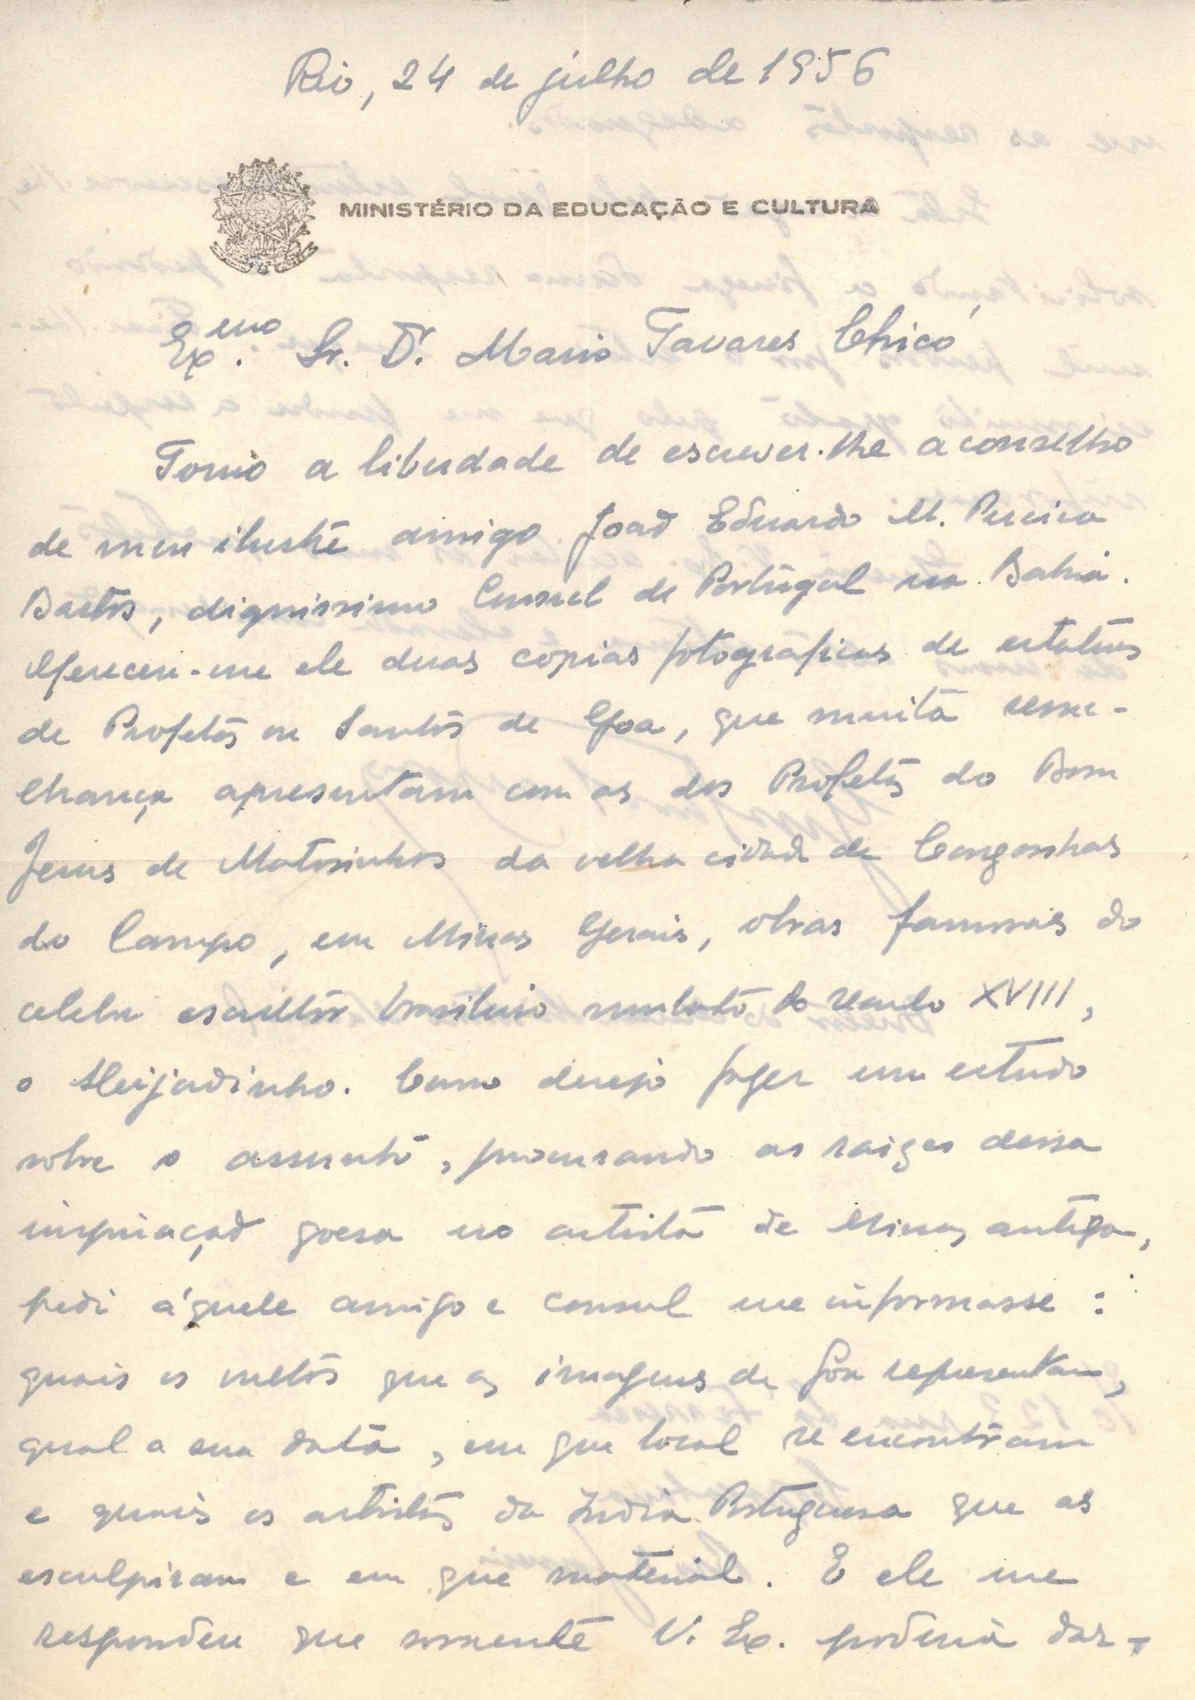 Rio, 24 de julho de 1956
MINISTÉRIO DA EDUCAÇÃO E CULTURA
Exmo. Sr. Dr. Mario Tavares Chicó
Tomo a liberdade de escrever-lhe a conselho
de meu ilustre amigo João Eduardo M. Pereira
Bastos, dignissimo Consul de Portugal na Bahia.
Ofereceu-me ele duas copias fotograficas de estatuas
de Profetas ou Santos de Goa, que muita seme-
lhança apresentam com as dos Profetas do Bom
Jesus de Matosinhos da velha cidade de Congonhas
do Campo, em Minas Gerais, obras famosas do
celebre escultor brasileiro mulato do seculo XVIII,
o Aleijadinho. Como desejo fazer um estudo
sobre o assunto, procurando as raizes dessa
inspiração goesa no artista de Minas antiga,
pedi áquele amigo e consul me informasse:
quais os que as imagens de Goa representam,
qual a sua data, em que local se encontram
e quais os artistas da India Portuguesa que as
esculpiram e em que material. E ele me
respondeu que somente V. Ex. poderia dar-